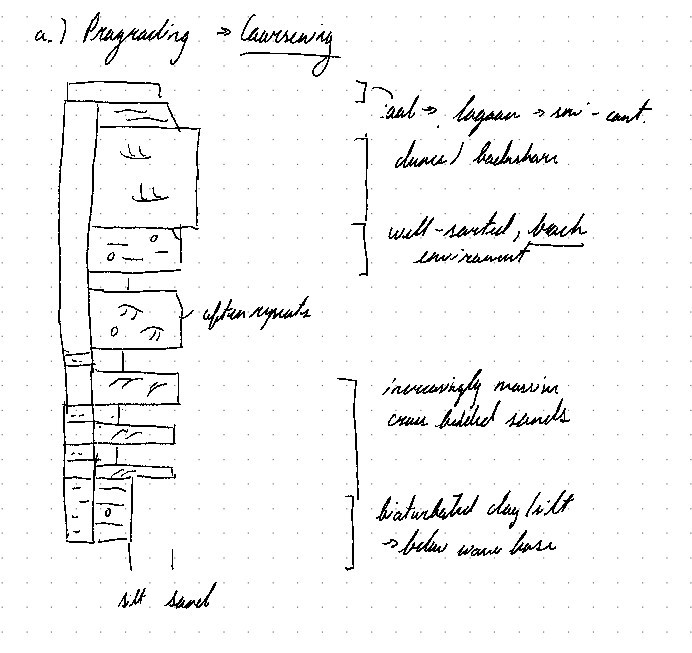 a.) Prograding → Coarsening
coal → lagoon → semi-cont.
dunes / backshore
well-sorted, beach
environment
often repeats
increasingly massive
cross bedded sands
bioturbated clay/silt
→ below wave base
silt sand